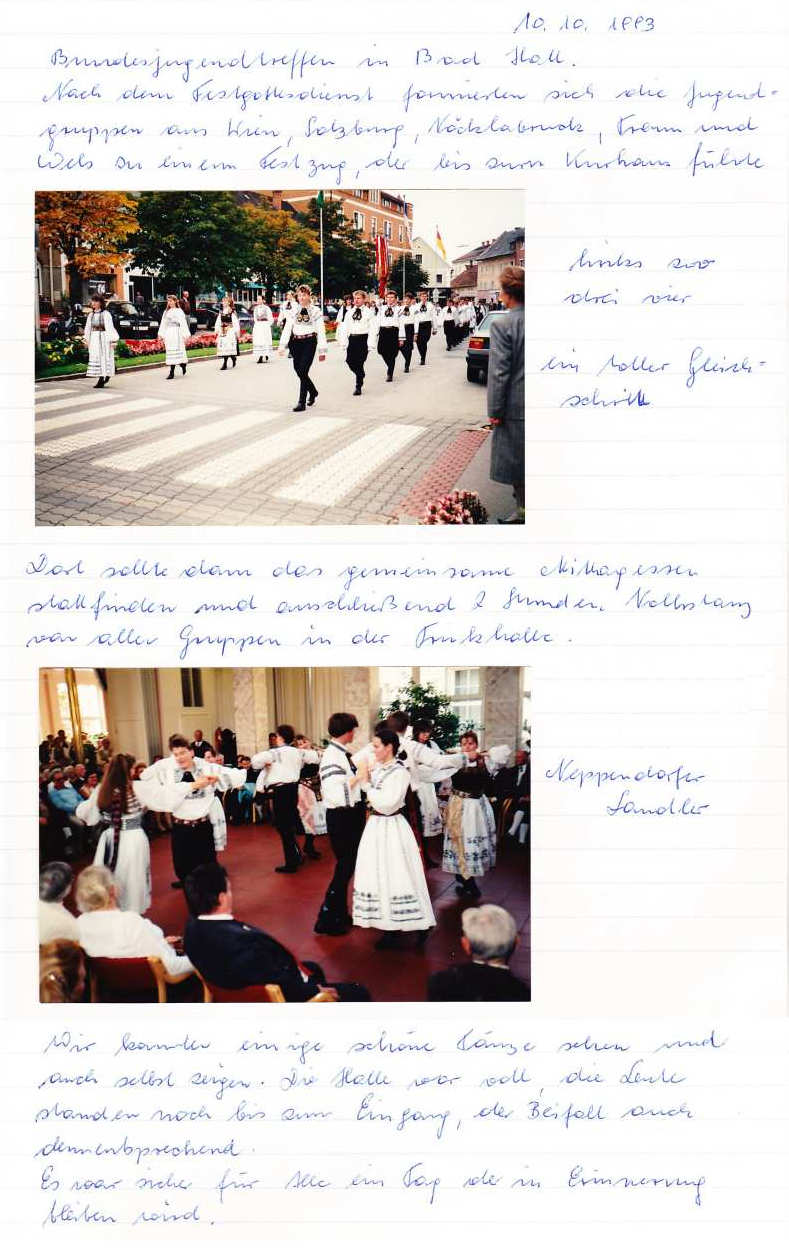 10. 10. 1993
Bundesjugendtreffen in Bad Hall.
Nach dem Festgottesdienst formierten sich die Jugend-
gruppen aus Wien, Salzburg, Vöcklabruck, Traun und
Wels zu einem Festzug, der bis zum Kurhaus führte
links zwo
drei vier
ein toller Gleich-
schritt
Dort sollte dann das gemeinsame Mittagessen
stattfinden und anschließend 2 Stunden Volkstanz
von allen Gruppen in der Trinkhalle.
Neppendorfer
Landler
Wir konnten einige schöne Tänze sehen und
auch selbst zeigen. Die Halle war voll, die Leute
standen noch bis zum Eingang, der Beifall auch
dementsprechend.
Es war sicher für Alle ein Tag der in Erinnerung
bleiben wird.